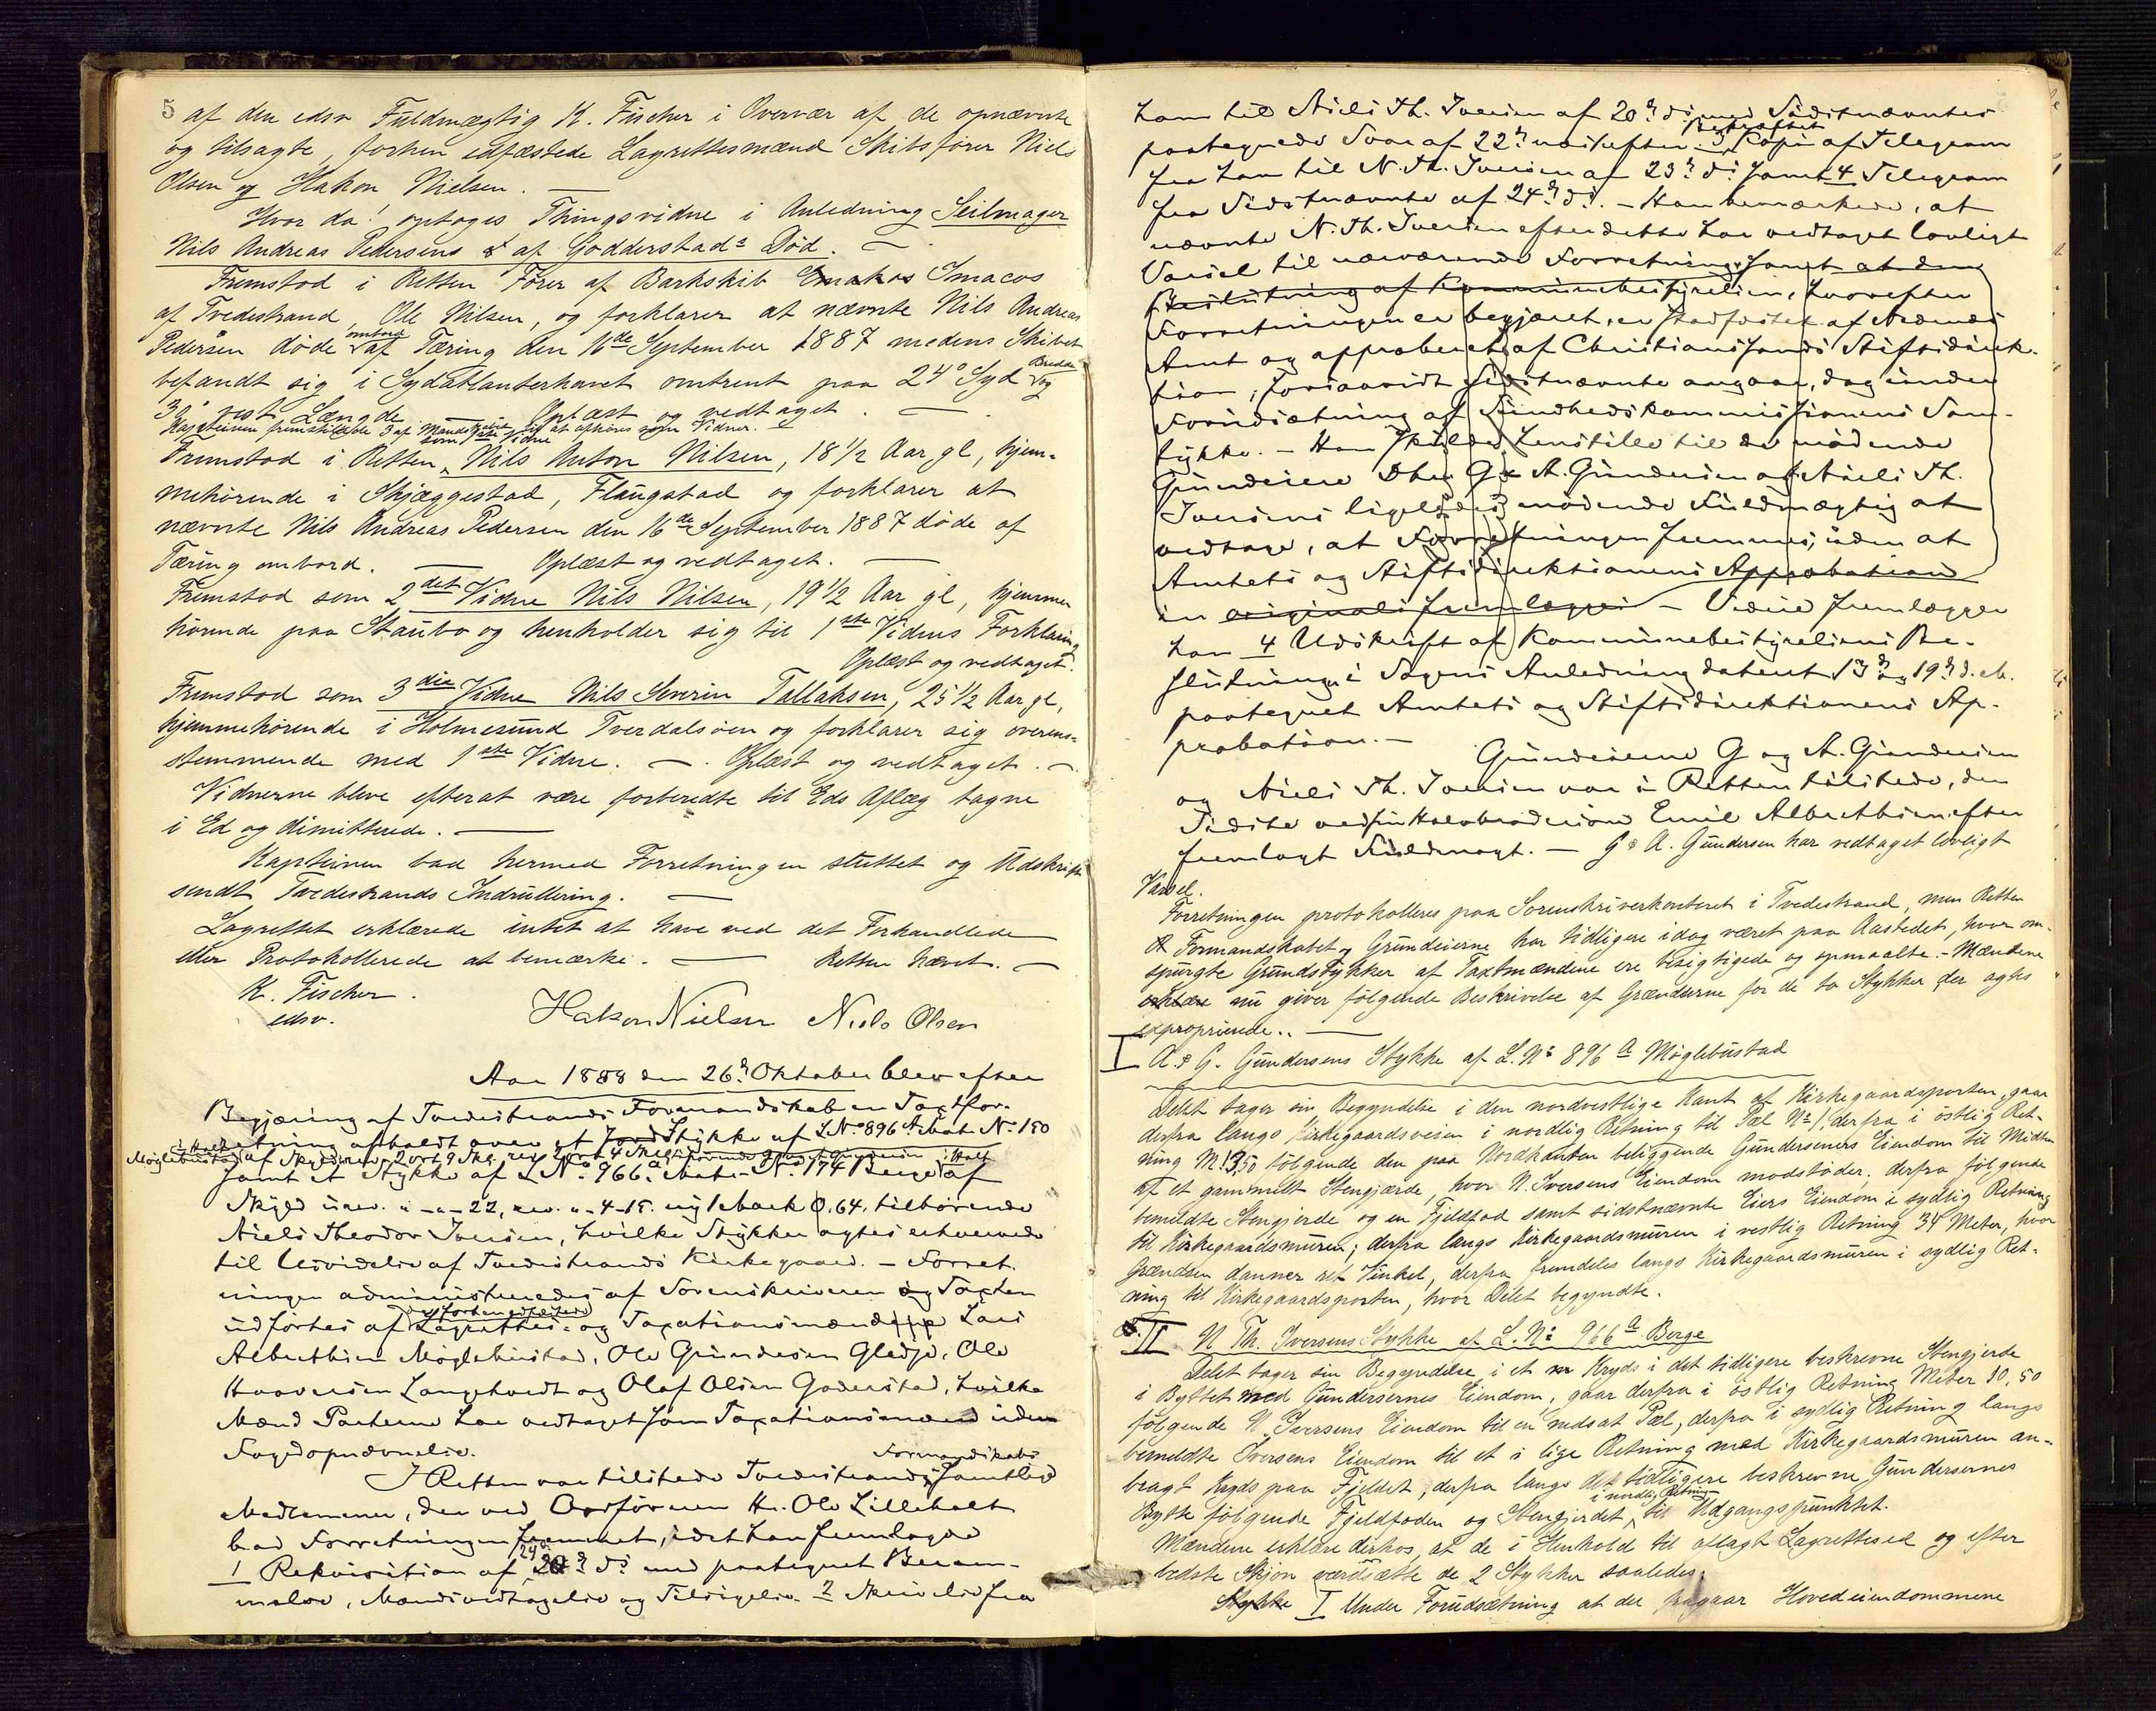 5 af den edsv Fuldmægtig K. Fischer i Overvær af de opnævnte
og tilsagte, forhen edfæstede Lagrettesmænd Skibsfører Niels
Olsen og Hakon Nielsen. —
Hvor da! optoges Thingsvidne i Anledning Seilmager
Nils Andreas Pedersens af Godderstads Død. —
Fremstod i Retten Fører af Barkskib Imacos
af Tvedestrand Ole Nilsen, og forklarer at nævnte Nils Andreas
Pedersen døde ombord af Tæring den 16de September 1887 medens Skibet
befandt sig i Sydatlanterhavet omtrent paa 24° Syd Bredde og
3° vest Længde Oplæst og vedtaget. —
Kapteinen fremstillede 3 af Mandskabet til at afhøres som Vidner.
som 1ste Vidne
Fremstod i Retten Nils Anton Nilsen, 18 1/2 Aar gl, hjem-
mehørende i Skjæggestad, Flaugstad og forklarer at
nævnte Nils Andreas Pedersen den 16de September 1887 døde af
Tæring ombord. — Oplæst og vedtaget. —
Fremstod som 2det Vidne Nils Nilsen, 19 1/2 Aar gl, hjemme
hørende paa Staubo og henholder sig til 1ste Vidnes Forklaring
Oplæst og vedtaget.
Fremstod som 3die Vidne Nils Severin Tallaksen, 25 1/2 Aar gl,
hjemmehørende i Holmesund Tverdalsøen og forklarer sig overens-
stemmende med 1ste Vidne. — Oplæst og vedtaget. —
Vidnerne bleve efterat være forberedte til Eds Aflæg tagne
i Ed og dimitterede. —
Kapteinen bad hermed Forretningen sluttet og Udskrift
sendt Tvedestrands Indrullering. —
Lagrettet erklærede intet at have ved det Forhandlede
eller Protokollerede at bemærke. — Retten hævet. —
K. Fischer.
edsv.
Hakon Nielsen Niels Olsen
Aar 1888 den 26d Oktober blev efter
Begjæring af Tvedestrands Formandskab en Taxtfor-
retning afholdt over et Jord Stykke af L No 896 a Mat. No 150
Møglebustad af Skyld urev. 2 ort 9 Skl, rev. 2 ort 4 Skl tilhørende G og A Gundersen
samt et Stykke af L No 966 a Mat. No 174 Berge af
Skyld urev. " - " - 22, rev. " - 4 - 15. ny Mark 0.64. tilhørende
Niels Theodor Iversen, hvilke Stykker agtes erhvervede
til Udvidelse af Tvedestrands Kirkegaard. — Forret-
ningen administreredes af Sorenskriveren og Taxten
udførtes af de forhen edfæstede Lagrettes- og Taxationsmænd Lars
Albertsen Møglebustad, Ole Gundersen Gledje, Ole
Haaversen Langtvedt og Olaf Olsen Goderstad, hvilke
Mænd Parterne har vedtaget som Taxationsmænd uden
Fogedopnævnelse.
I Retten var tilstede Tvedestrands Formandskabs samtlige
Medlemmer, der ved Ordføreren Hr. Ole Lilleholt
bad Forretningen fremmet, idet han fremlagde
1 Rekvisition af 20d ds med paategnet Beram-
melse, Mændsvedtagelse og Tilsigelse 2 Skrivelse fra
ham til Niels Th. Iversen af 20d ds med Sidstnævntes
paategnede Svar af 22d næstefter. 3 Bekræftet Kopi af Telegram
fra ham til N. Th. Iversen af 23d ds samt 4 Telegram
fra Sidstnævnte af 24d ds. — Han bemærkede, at
nævnte N. Th. Iversen efter dette har vedtaget lovligt
Varsel til nærværende Forretning, samt at den
Beslutning af Kommunebestyrelsen, hvorefter
Forretningen er begjæret, er stadfæstet af Nedenæs
Amt og approberet af Christianssands Stiftsdirek-
tion, forsaavidt sidstnævnte angaar, dog under
Forudsætning af Sundhedskommissionens Sam-
tykke. — Han skulde henstille til de mødende
Grundeiere Dhr. G & A. Gundersen og Niels Th.
Iversens ligeledes mødende Fuldmægtig at
vedtage, at Forretningen fremmes, uden at
Amtets og Stiftsdirektionens Approbation
in originali fremlægges — Videre fremlægger
han 4 Udskrift af Kommunebestyrelsens Be-
slutning i Sagens Anledning dateret 13d og 19d d. M.
paategnet Amtets og Stiftsdirektionens Ap-
probation. —
Grundeierne G og A. Gundersen
og Niels Th. Iversen var i Retten tilstede, den
Sidste ved sin Halvbroder Emil Albertsen efter
fremlagt Fuldmagt. — G & A. Gundersen har vedtaget lovligt
Varsel.
Forretningen protokolleres paa Sorenskriverkontoret i Tvedestrand, men Retten
Formandskabet og Grundeierne har tidligere idag været paa Aastedet, hvor om-
spurgte Grundstykker af Taxtmændene ere besigtigede og opmaalte. — Mændene
nu giver følgende Beskrivelse af Grændserne for de to Stykker der agtes
exproprierede.. —
I A. & G. Gundersens Stykke af L. No 896 a Møglebustad
Delet tager sin Begyndelse i den nordvestlige Kant af Kirkegaardsporten, gaar
derfra langs Kirkegaardsveien i nordlig Retning til Pæl No 1. derfra i østlig Ret-
ning M. 13,50 følgende den paa Nordkanten beliggende Gundersenernes Eiendom til Midten
af et gammelt Stengjærde, hvor N. Iversens Eiendom modstøder; derfra følgende
bemeldte Stengjerde og en Fjeldfod samt sidstnævnte Eiers Eiendom i sydlig Retning
til Kirkegaardsmuren; derfra langs Kirkegaardsmuren i vestlig Retning 34 Meter, hvor
Grændsen danner ret Vinkel, derfra fremdeles langs Kirkegaardsmuren i sydlig Ret-
ning til Kirkegaardsporten, hvor Delet begyndte.
II N Th. Iversens Stykke af L. No 966 a Berge
Delet tager sin Begyndelse i et Kryds i det tidligere beskrevne Stengjerde
i Byttet med Gundersernes Eiendom, gaar derfra i østlig Retning Meter 10,50
følgende N. Iversens Eiendom til en nedsat Pæl, derfra i sydlig Retning langs
bemeldte Iversens Eiendom til et i lige Retning med Kirkegaardsmuren an-
bragt Kryds paa Fjeldet, derfra langs det tidligere beskrevne Gundersernes
Bytte følgende Fjeldfoden og Stengjerdet i nordlig Retning til Udgangspunktet.
Mændene erklære derhos, at de i Henhold til aflagt Lagrettesed og efter
bedste Skjøn værdsætte de 2 Stykker saaledes.
Stykke I Under Forudsætning at der fragaar Hovedeiendommene